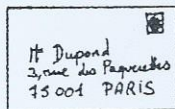 Mt Dupond
3, rue des Paquerettes
75001 PARIS